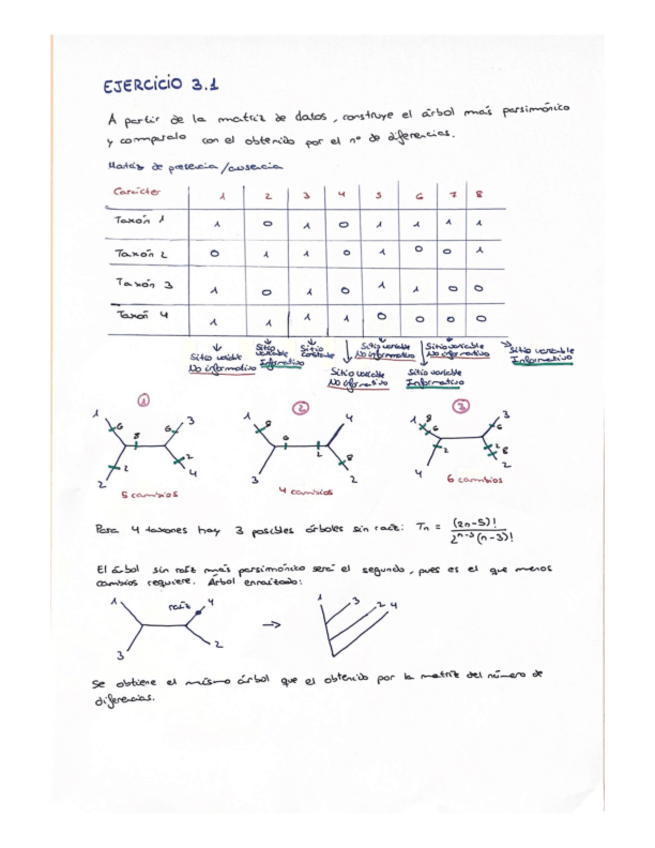 EJERCICIO 3.1
A partir de la matriz de datos, construye el árbol más parsimónico
y comparalo con el obtenido por el nº de diferencias.
Matriz de presencia/ausencia
Carácter 1 2 3 4 5 6 7 8
Taxón 1 1 0 1 0 1 1 1 1
Taxón 2 0 1 1 0 1 0 0 1
Taxón 3 1 0 1 0 1 1 0 0
Taxón 4 1 1 1 1 0 0 0 0
Sitio variable No informativo
Sitio variable Informativo
Sitio constante
Sitio variable No informativo
Sitio variable No informativo
Sitio variable Informativo
Sitio variable No informativo
Sitio variable Informativo
1 2 3
1 6 8 6 3
2 2 2 4
5 cambios
1 8 6 2 4
3 8 2
4 cambios
1 8 6 6 3
4 2 2 8 2
6 cambios
Para 4 taxones hay 3 posibles árboles sin raíz: Tn = (2n-5)! / 2^n-3 (n-3)!
El árbol sin raíz más parsimónico será el segundo, pues es el que menos
cambios requiere. Árbol enraizado:
1 raíz 4
3 2
→
1 3 2 4
Se obtiene el mismo árbol que el obtenido por la matriz del número de
diferencias.